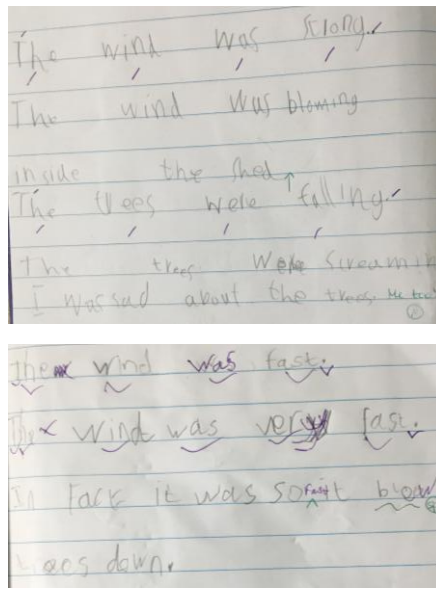 The wind was strong.
The wind was blowing
inside the shed
The trees were falling.
The trees were screamin
I was sad about the trees. Me too
The wind was fast.
The wind was very fast.
In fact it was so fast it blew
trees down.